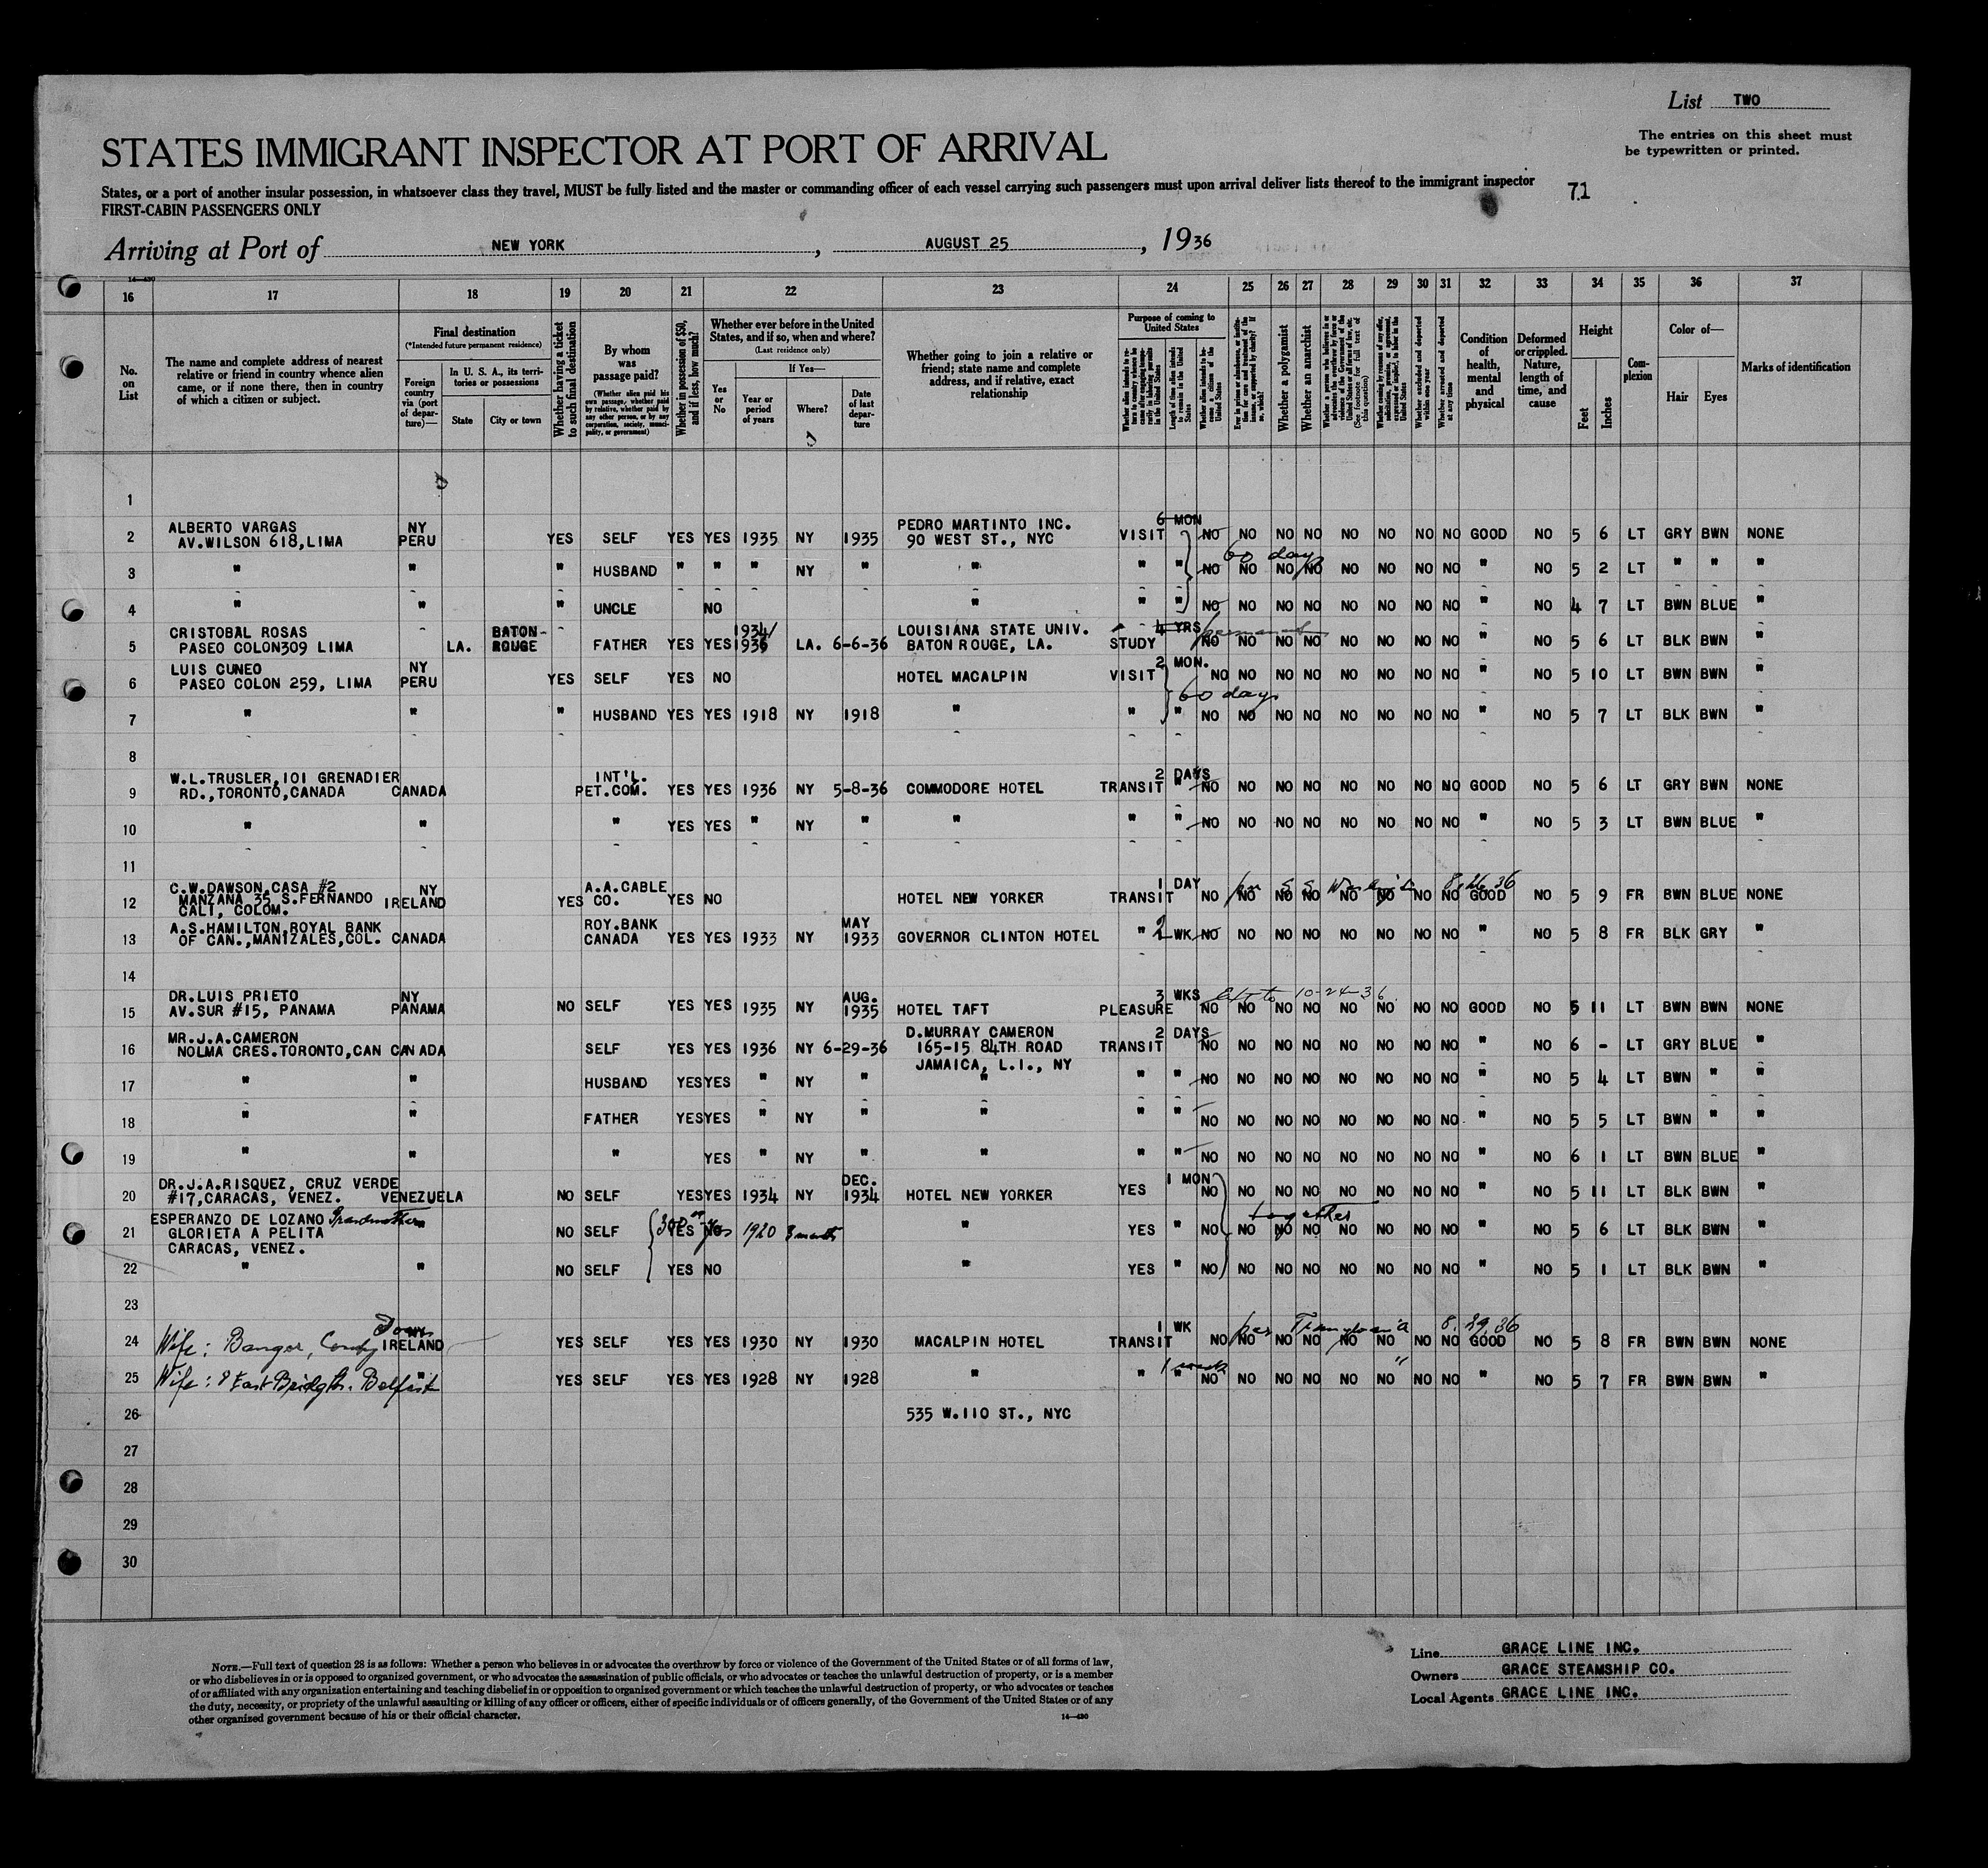 List TWO
The entries on this sheet must
be typewritten or printed.
STATES IMMIGRANT INSPECTOR AT PORT OF ARRIVAL
States, or a port of another insular possession, in whatsoever class they travel, MUST be fully listed and the master or commanding officer of each vessel carrying such passengers must upon arrival deliver lists thereof to the immigrant inspector
71
FIRST-CABIN PASSENGERS ONLY
Arriving at Port of NEW YORK, AUGUST 25, 1936
14—430
16 17 18 19 20 21 22 23 24 25 26 27 28 29 30 31 32 33 34 35 36 37
No. on List
The name and complete address of nearest relative or friend in country whence alien came, or if none there, then in country of which a citizen or subject.
Final destination
(*Intended future permanent residence)
Foreign country via (port of departure)—
In U. S. A., its territories or possessions
State
City or town
Whether having a ticket to such final destination
By whom was passage paid?
(Whether alien paid his own passage, whether paid by relative, whether paid by any other person, or by any corporation, society, municipality, or government)
Whether in possession of $50, and if less, how much?
Whether ever before in the United States, and if so, when and where?
(Last residence only)
Yes or No
If Yes—
Year or period of years
Where?
Date of last departure
Whether going to join a relative or friend; state name and complete address, and if relative, exact relationship
Purpose of coming to United States
Length of time alien intends to remain in the United States
Whether a polygamist
Whether an anarchist
Whether excluded and deported within one year
Whether arrested and deported at any time
Condition of health, mental and physical
Deformed or crippled. Nature, length of time, and cause
Height
Feet
Inches
Complexion
Color of—
Hair
Eyes
Marks of identification
1
6 MON
2 ALBERTO VARGAS AV.WILSON 618,LIMA NY PERU YES SELF YES YES 1935 NY 1935 PEDRO MARTINTO INC. 90 WEST ST., NYC VISIT NO NO NO NO NO NO NO NO GOOD NO 5 6 LT GRY BWN NONE
60 days
3 " " " HUSBAND " " " NY " " " " NO NO NO NO NO NO NO NO " NO 5 2 LT " " "
4 " " " UNCLE NO " " " NO NO NO NO NO NO NO NO " NO 4 7 LT BWN BLUE "
5 CRISTOBAL ROSAS PASEO COLON309 LIMA LA. BATON-ROUGE FATHER YES YES 1934/1936 LA. 6-6-36 LOUISIANA STATE UNIV. BATON ROUGE, LA. STUDY 4 YRS permanent NO NO NO NO NO NO NO NO " NO 5 6 LT BLK BWN "
6 LUIS CUNEO PASEO COLON 259, LIMA NY PERU YES SELF YES NO HOTEL MACALPIN VISIT 2 MON. NO NO NO NO NO NO NO NO " NO 5 10 LT BWN BWN "
60 days
7 " " " HUSBAND YES YES 1918 NY 1918 " " " NO NO NO NO NO NO NO NO " NO 5 7 LT BLK BWN "
8
9 W.L.TRUSLER,101 GRENADIER RD.,TORONTO,CANADA CANADA INT'L. PET.COM. YES YES 1936 NY 5-8-36 COMMODORE HOTEL TRANSIT 2 DAYS " NO NO NO NO NO NO NO NO GOOD NO 5 6 LT GRY BWN NONE
10 " " " YES YES " NY " " " " NO NO NO NO NO NO NO NO " NO 5 3 LT BWN BLUE "
11
12 C.W.DAWSON,CASA #2 MANZANA 35 S.FERNANDO CALI, COLOM. NY IRELAND YES A.A.CABLE CO. YES NO HOTEL NEW YORKER TRANSIT 1 DAY NO NO NO NO NO NO NO NO GOOD NO 5 9 FR BWN BLUE NONE
8.26.36
13 A.S.HAMILTON,ROYAL BANK OF CAN.,MANIZALES,COL. CANADA ROY.BANK CANADA YES YES 1933 NY MAY 1933 GOVERNOR CLINTON HOTEL " 2 WK NO NO NO NO NO NO NO NO " NO 5 8 FR BLK GRY "
14
15 DR.LUIS PRIETO AV.SUR #15, PANAMA NY PANAMA NO SELF YES YES 1935 NY AUG. 1935 HOTEL TAFT PLEASURE 3 WKS NO NO NO NO NO NO NO NO GOOD NO 5 11 LT BWN BWN NONE
10-24-36
16 MR.J.A.CAMERON NOLMA CRES.TORONTO,CAN CANADA SELF YES YES 1936 NY 6-29-36 D.MURRAY CAMERON 165-15 84TH ROAD JAMAICA, L.I., NY TRANSIT 2 DAYS NO NO NO NO NO NO NO NO " NO 6 - LT GRY BLUE "
17 " " HUSBAND YES YES " NY " " " " NO NO NO NO NO NO NO NO " NO 5 4 LT BWN " "
18 " " FATHER YES YES " NY " " " " NO NO NO NO NO NO NO NO " NO 5 5 LT BWN " "
19 " " " YES " NY " " " NO NO NO NO NO NO NO NO " NO 6 1 LT BWN BLUE "
20 DR.J.A.RISQUEZ, CRUZ VERDE #17,CARACAS, VENEZ. VENEZUELA NO SELF YES YES 1934 NY DEC. 1934 HOTEL NEW YORKER YES 1 MON NO NO NO NO NO NO NO NO " NO 5 11 LT BLK BWN "
together
21 ESPERANZO DE LOZANO Grandmother GLORIETA A PELITA CARACAS, VENEZ. " NO SELF 300 YES NO yes 1920 3 months " YES " NO NO NO NO NO NO NO NO " NO 5 6 LT BLK BWN "
22 " " NO SELF YES NO " YES " NO NO NO NO NO NO NO NO " NO 5 1 LT BLK BWN "
23
24 Wife: Bangor, County Down NY IRELAND YES SELF YES YES 1930 NY 1930 MACALPIN HOTEL TRANSIT 1 WK NO NO NO NO NO NO NO NO GOOD NO 5 8 FR BWN BWN NONE
per Transylvania 8.29.36
25 Wife: 8 East Bridge St. Belfast " YES SELF YES YES 1928 NY 1928 " " 1 week " NO NO NO NO NO NO NO NO " NO 5 7 FR BWN BWN "
26 535 W.110 ST., NYC
27
28
29
30
NOTE.—Full text of question 28 is as follows: Whether a person who believes in or advocates the overthrow by force or violence of the Government of the United States or of all forms of law,
or who disbelieves in or is opposed to organized government, or who advocates the assassination of public officials, or who advocates or teaches the unlawful destruction of property, or is a member
of or affiliated with any organization entertaining and teaching disbelief in or opposition to organized government or which teaches the unlawful destruction of property, or who advocates or teaches
the duty, necessity, or propriety of the unlawful assaulting or killing of any officer or officers, either of specific individuals or of officers generally, of the Government of the United States or of any
other organized government because of his or their official character.
14—430
Line GRACE LINE INC.
Owners GRACE STEAMSHIP CO.
Local Agents GRACE LINE INC.